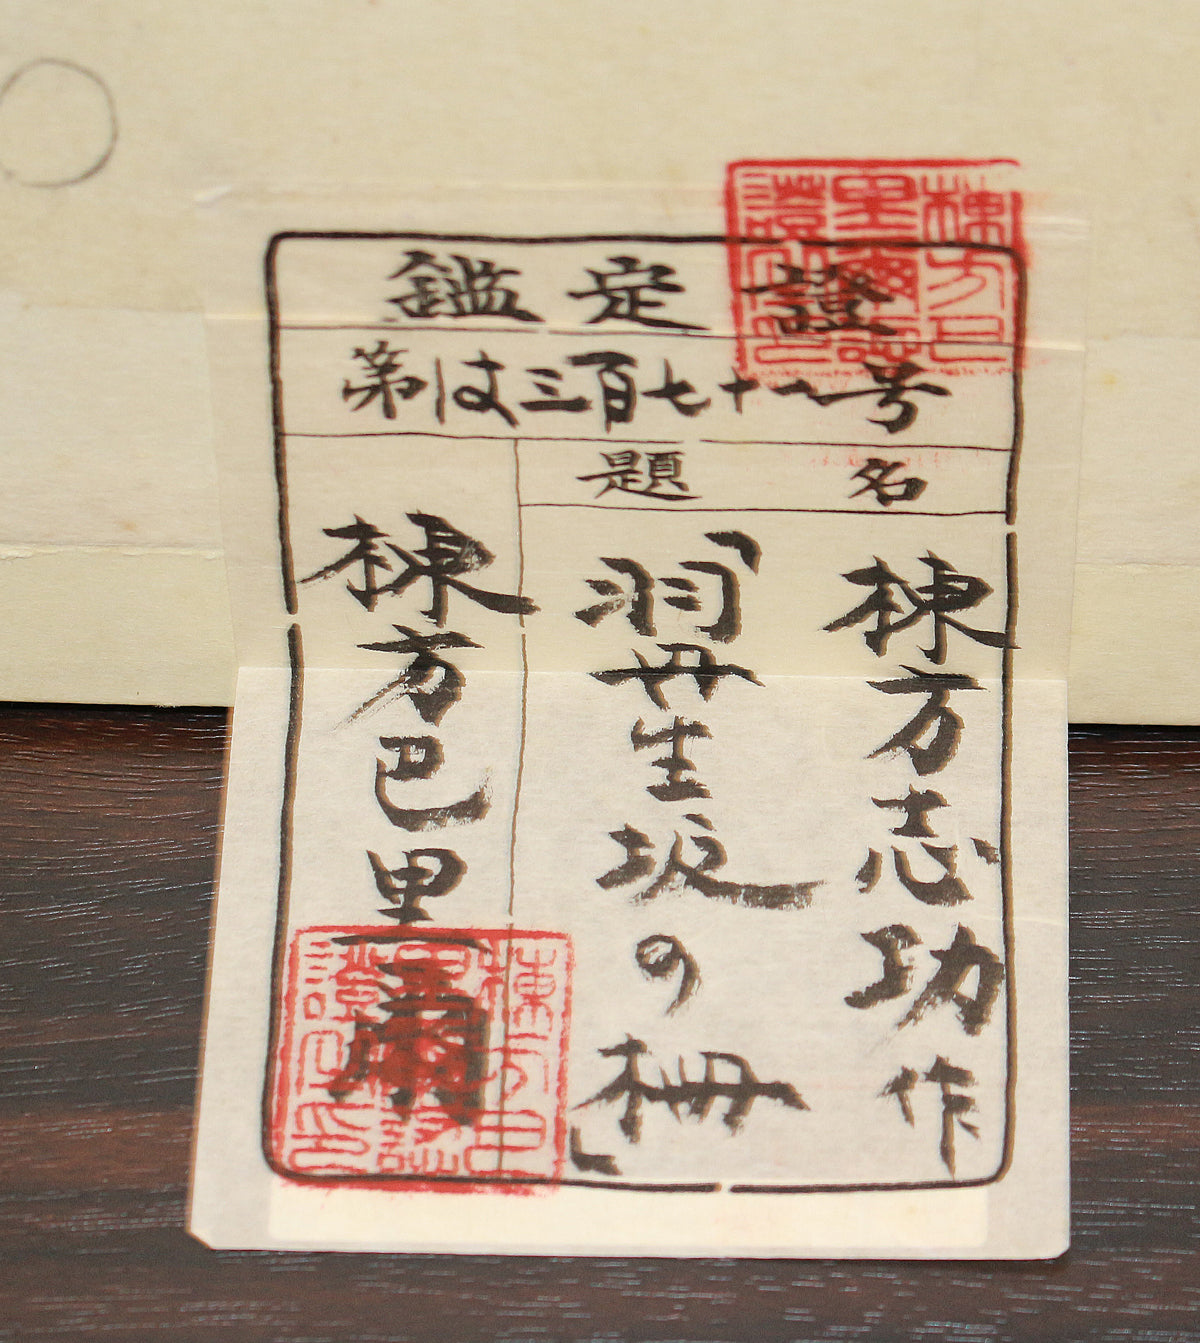 鑑定證
第は三百七十一号
題名
棟方志功作
「羽丹生坂の柵」
棟方巴里爾